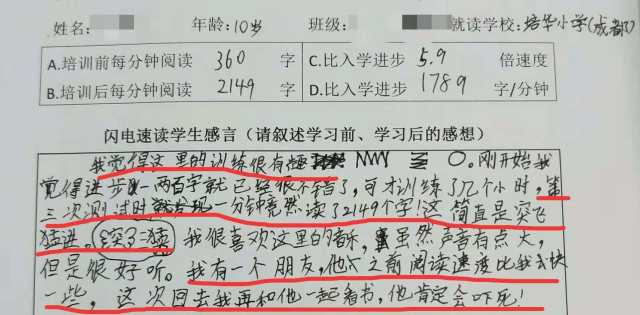 姓名: 年龄:10岁 班级: 就读学校:培华小学(成都)
A.培训前每分钟阅读 360 字 C.比入学进步 5.9 倍速度
B.培训后每分钟阅读 2149 字 D.比入学进步 1789 字/分钟
闪电速读学生感言(请叙述学习前、学习后的感想)
我觉得这里的训练很有 。刚开始我
觉得进步 一两百字就已经很不错了,可才训练了几个小时,第
三次测试时就发现一分钟竟然读了2149个字!这简直是突飞
猛进。 我很喜欢这里的音乐,虽然声音有点大,
但是很好听。我有一个朋友,他 之前阅读速度比我 快
一些,这次回去我再和他一起看书,他肯定会吓死!